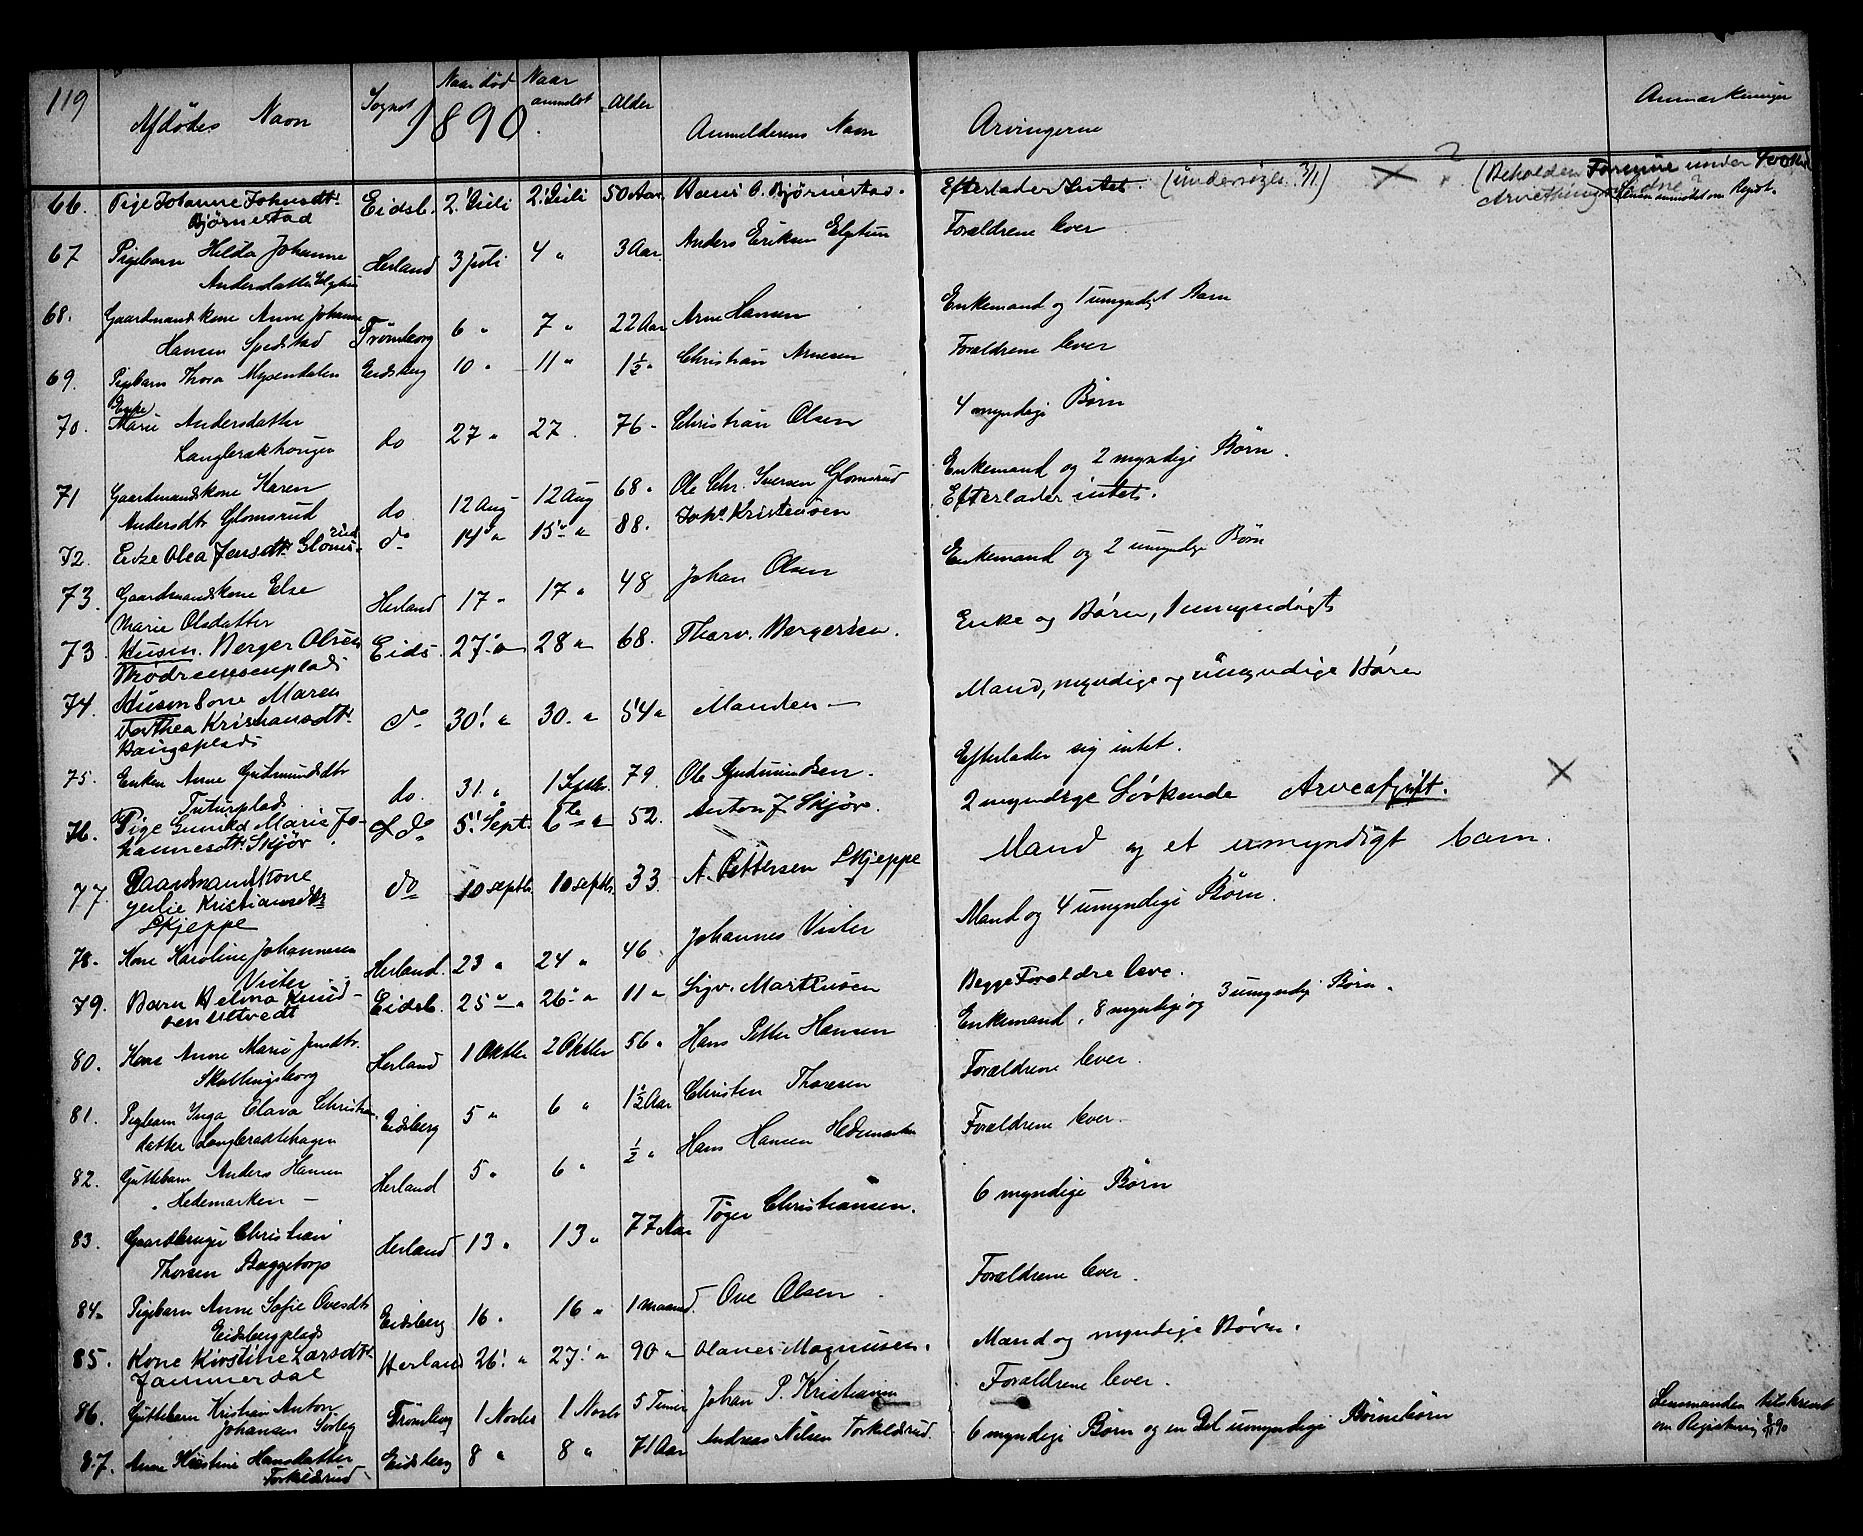 119
Afdødes Navn Sognet Naar død Naar anmeldt Alder Anmelderens Navn Arvingerne Anmærkninger
1890.
66. Pige Johanne Johnsdt. Eidsb. 2' Juli 2' Juli 50 Aar Hans O. Bjørnestad. Efterlader Intet. (undersøges 3/1) X ? (Beholden Formue under 400 Kr
Bjørnestad
67 Pigebarn Hilda Johanne Herland 3 Juli 4 " 3 Aar Anders Eriksen Elgtun Forældrene lever
Andersdatter Elgtun
68. Gaardmandskone Anne Johanne Trømborg 6 " 7 " 22 Aar Arne Hansen Enkemand og 1 umyndigt Barn
Hansen Spedstad
69. Pigebarn Thora Mysendalen Eidsberg 10 " 11 " 1½ " Christian Arnesen Forældrene lever
70. Enke Marie Andersdatter do 27 " 27 76 " Christian Olsen 4 myndige Børn
71 Gaardmandskone Karen do 12 Aug 12 Aug 68 " Ole Chr. Iversen Glomsrud Enkemand og 2 myndige Børn.
Andersdtr Glomsrud
72. Enke Olea Jensdt. Gloms-rud do 14' " 15' " 88. Joh. Kristensen Efterlader intet.
73. Gaardmandskone Else Herland 17 " 17 " 48 Johan Olsen Enkemand og 2 umyndige Børn
Marie Olsdatter
73. Husm. Berger Olsen Eids. 27' " 28 " 68. Thorv. Bergersen. Enke og Børn, 1 umyndigt
74. Huskone Maren do 30' " 30. " 54 " Manden — Mand, myndige og umyndige Børn
Dorthea Kristiansdt.
75. Enken Anne Gudmundsdtr do. 31. " 1 Septbr. 79. Ole Gudmundsen. Efterlader sig intet.
76. Pige Gunild Marie Jo- do 5' Sept. 6te " 52. Anton J. Skjør. 2 myndige Søskende Arveafgift. X
hannesdt. Skjør
77. Gaardmandskone do 10 septbr. 10 septbr. 33. A. Pettersen Skjeppe Mand og et umyndigt barn.
Julie Kristiansdtr
Skjeppe
78. Kone Karoline Johannesen Herland. 23 " 24 " 46 Johannes Vister Mand og 4 umyndige Børn.
Vister
79. Barn Helma Knud- Eidsb. 25 " 26' " 11 " Sigv. Marthisen Begge Forældre leve.
80. Kone Anne Marie Jensdtr. Herland 1 Oktbr 2 Oktbr 56 " Hans Petter Hansen Enkemand, 8 myndige og 3 umyndig Børn.
Skallingsborg
81. Pigebarn Inga Olava Christian Eidsberg 5 " 6 " 1½ Aar Christen Thoresen Forældrene lever.
82. Guttebarn Anders Hansen Herland 5 " 6 " ½ " Hans Hansen Hedemarken Forældrene lever.
Hedemarken —
83. Gaardbruger Christian Herland 13 " 13 " 77 Aar Tøger Christiansen. 6 myndige Børn
Thorsen Baggetorp
84. Pigebarn Anne Sofie Ovesdtr Eidsberg 16 " 16 " 1 maaned. Ove Olsen Forældrene lever.
Eidsbergplads
85. Kone Kirstine Larsdt. Herland 26' " 27' " 90 " Olaves Magnusen. Mand og myndige Børn.
Jammerdal
86. Guttebarn Kristian Anton Trømborg 1 Novbr 1 Novb 5 Timer Johan P. Kristiansen Forældrene lever.
87. Anne Kirstine Hansdatter Eidsberg 8 " 8 " 71 Aar Andreas Nilsen Torkildsrud. 6 myndige Børn og en Del umyndige Børnebørn Lensmanden tilskrevet
Torkildsrud om Registrering